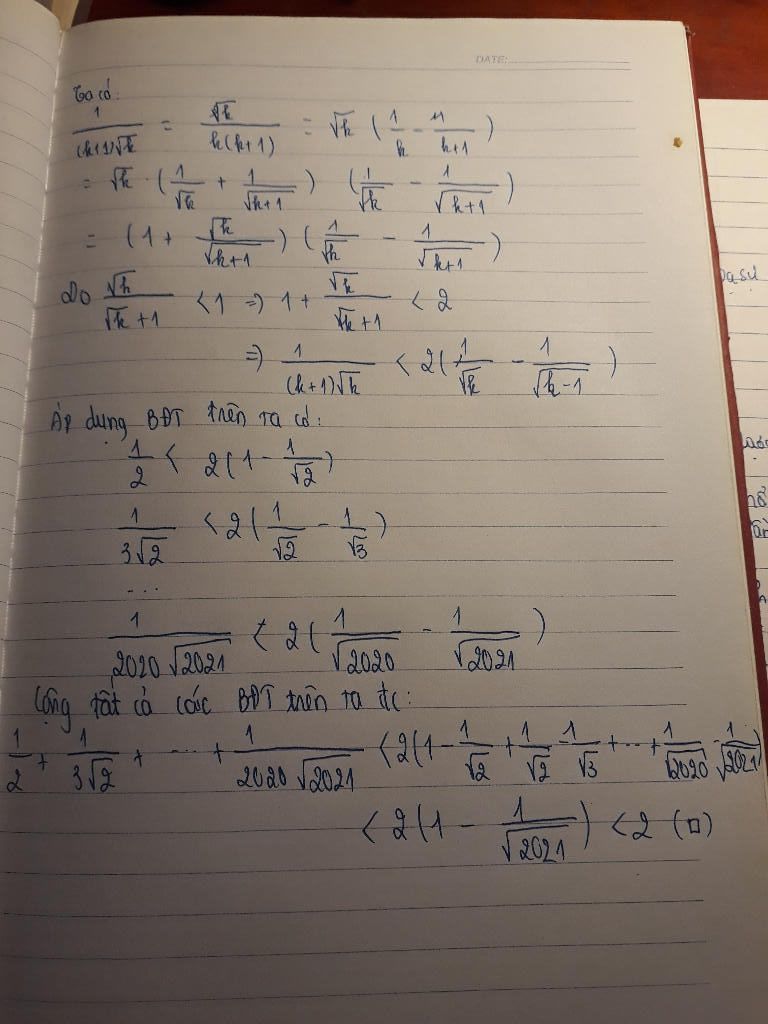 DATE:
Ta có:
1/((k+1)√k) = √k/(k(k+1)) = √k (1/k - 1/(k+1))
= √k · (1/√k + 1/√(k+1)) (1/√k - 1/√(k+1))
= (1 + √k/√(k+1)) (1/√k - 1/√(k+1))
Do √k/(√k+1) < 1 => 1 + √k/(√k+1) < 2
=> 1/((k+1)√k) < 2(1/√k - 1/√(k-1))
Áp dụng BĐT trên ta có:
1/2 < 2(1 - 1/√2)
1/(3√2) < 2(1/√2 - 1/√3)
...
1/(2020√2021) < 2(1/√2020 - 1/√2021)
Cộng tất cả các BĐT trên ta đc:
1/2 + 1/(3√2) + ... + 1/(2020√2021) < 2(1 - 1/√2 + 1/√2 - 1/√3 + ... + 1/√2020 - 1/√2021)
< 2(1 - 1/√2021) < 2 (□)